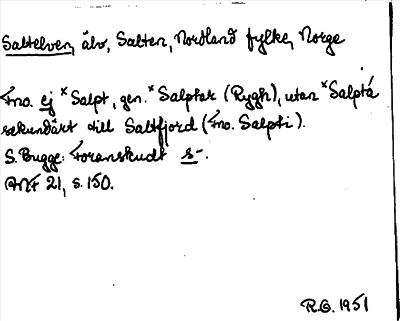 Saltelven, älv, Salten, Nordland fylke, Norge
Fno. ej *Salpt, gen. *Salptar (Rygh), utan *Salptá
sekundärt till Saltfjord (Fno. Salpti).
S. Bugge: Foranskudt s-.
ANF 21, s. 150.
R.G. 1951